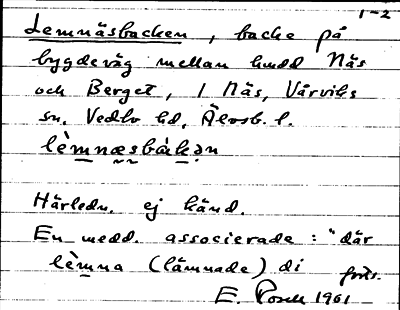 1-2
Lemnäsbacken, backe på
bygdeväg mellan hmdd Näs
och Berget, i Näs, Vårviks
sn. Vedbo hd, Älvsb. l.
lèmnæsbàkən
Härledn. ej känd.
En medd. associerade: "där
lèmna (lämnade) di forts.
E. 1961